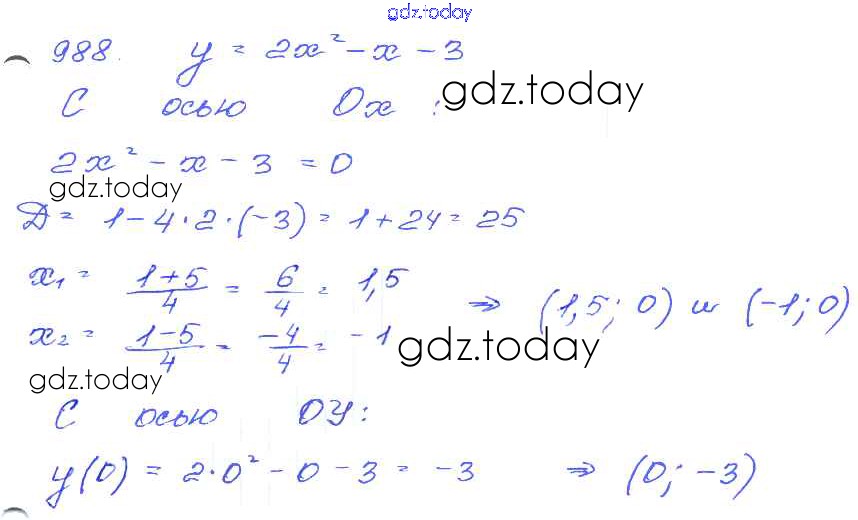 gdz.today
988. y = 2x² - x - 3
С осью Ox :
gdz.today
2x² - x - 3 = 0
gdz.today
Д = 1 - 4 · 2 · (-3) = 1 + 24 = 25
x₁ = (1+5)/4 = 6/4 = 1,5
⇒ (1,5; 0) и (-1; 0)
x₂ = (1-5)/4 = -4/4 = -1
gdz.today
gdz.today
С осью ОУ:
y(0) = 2·0² - 0 - 3 = -3 ⇒ (0; -3)